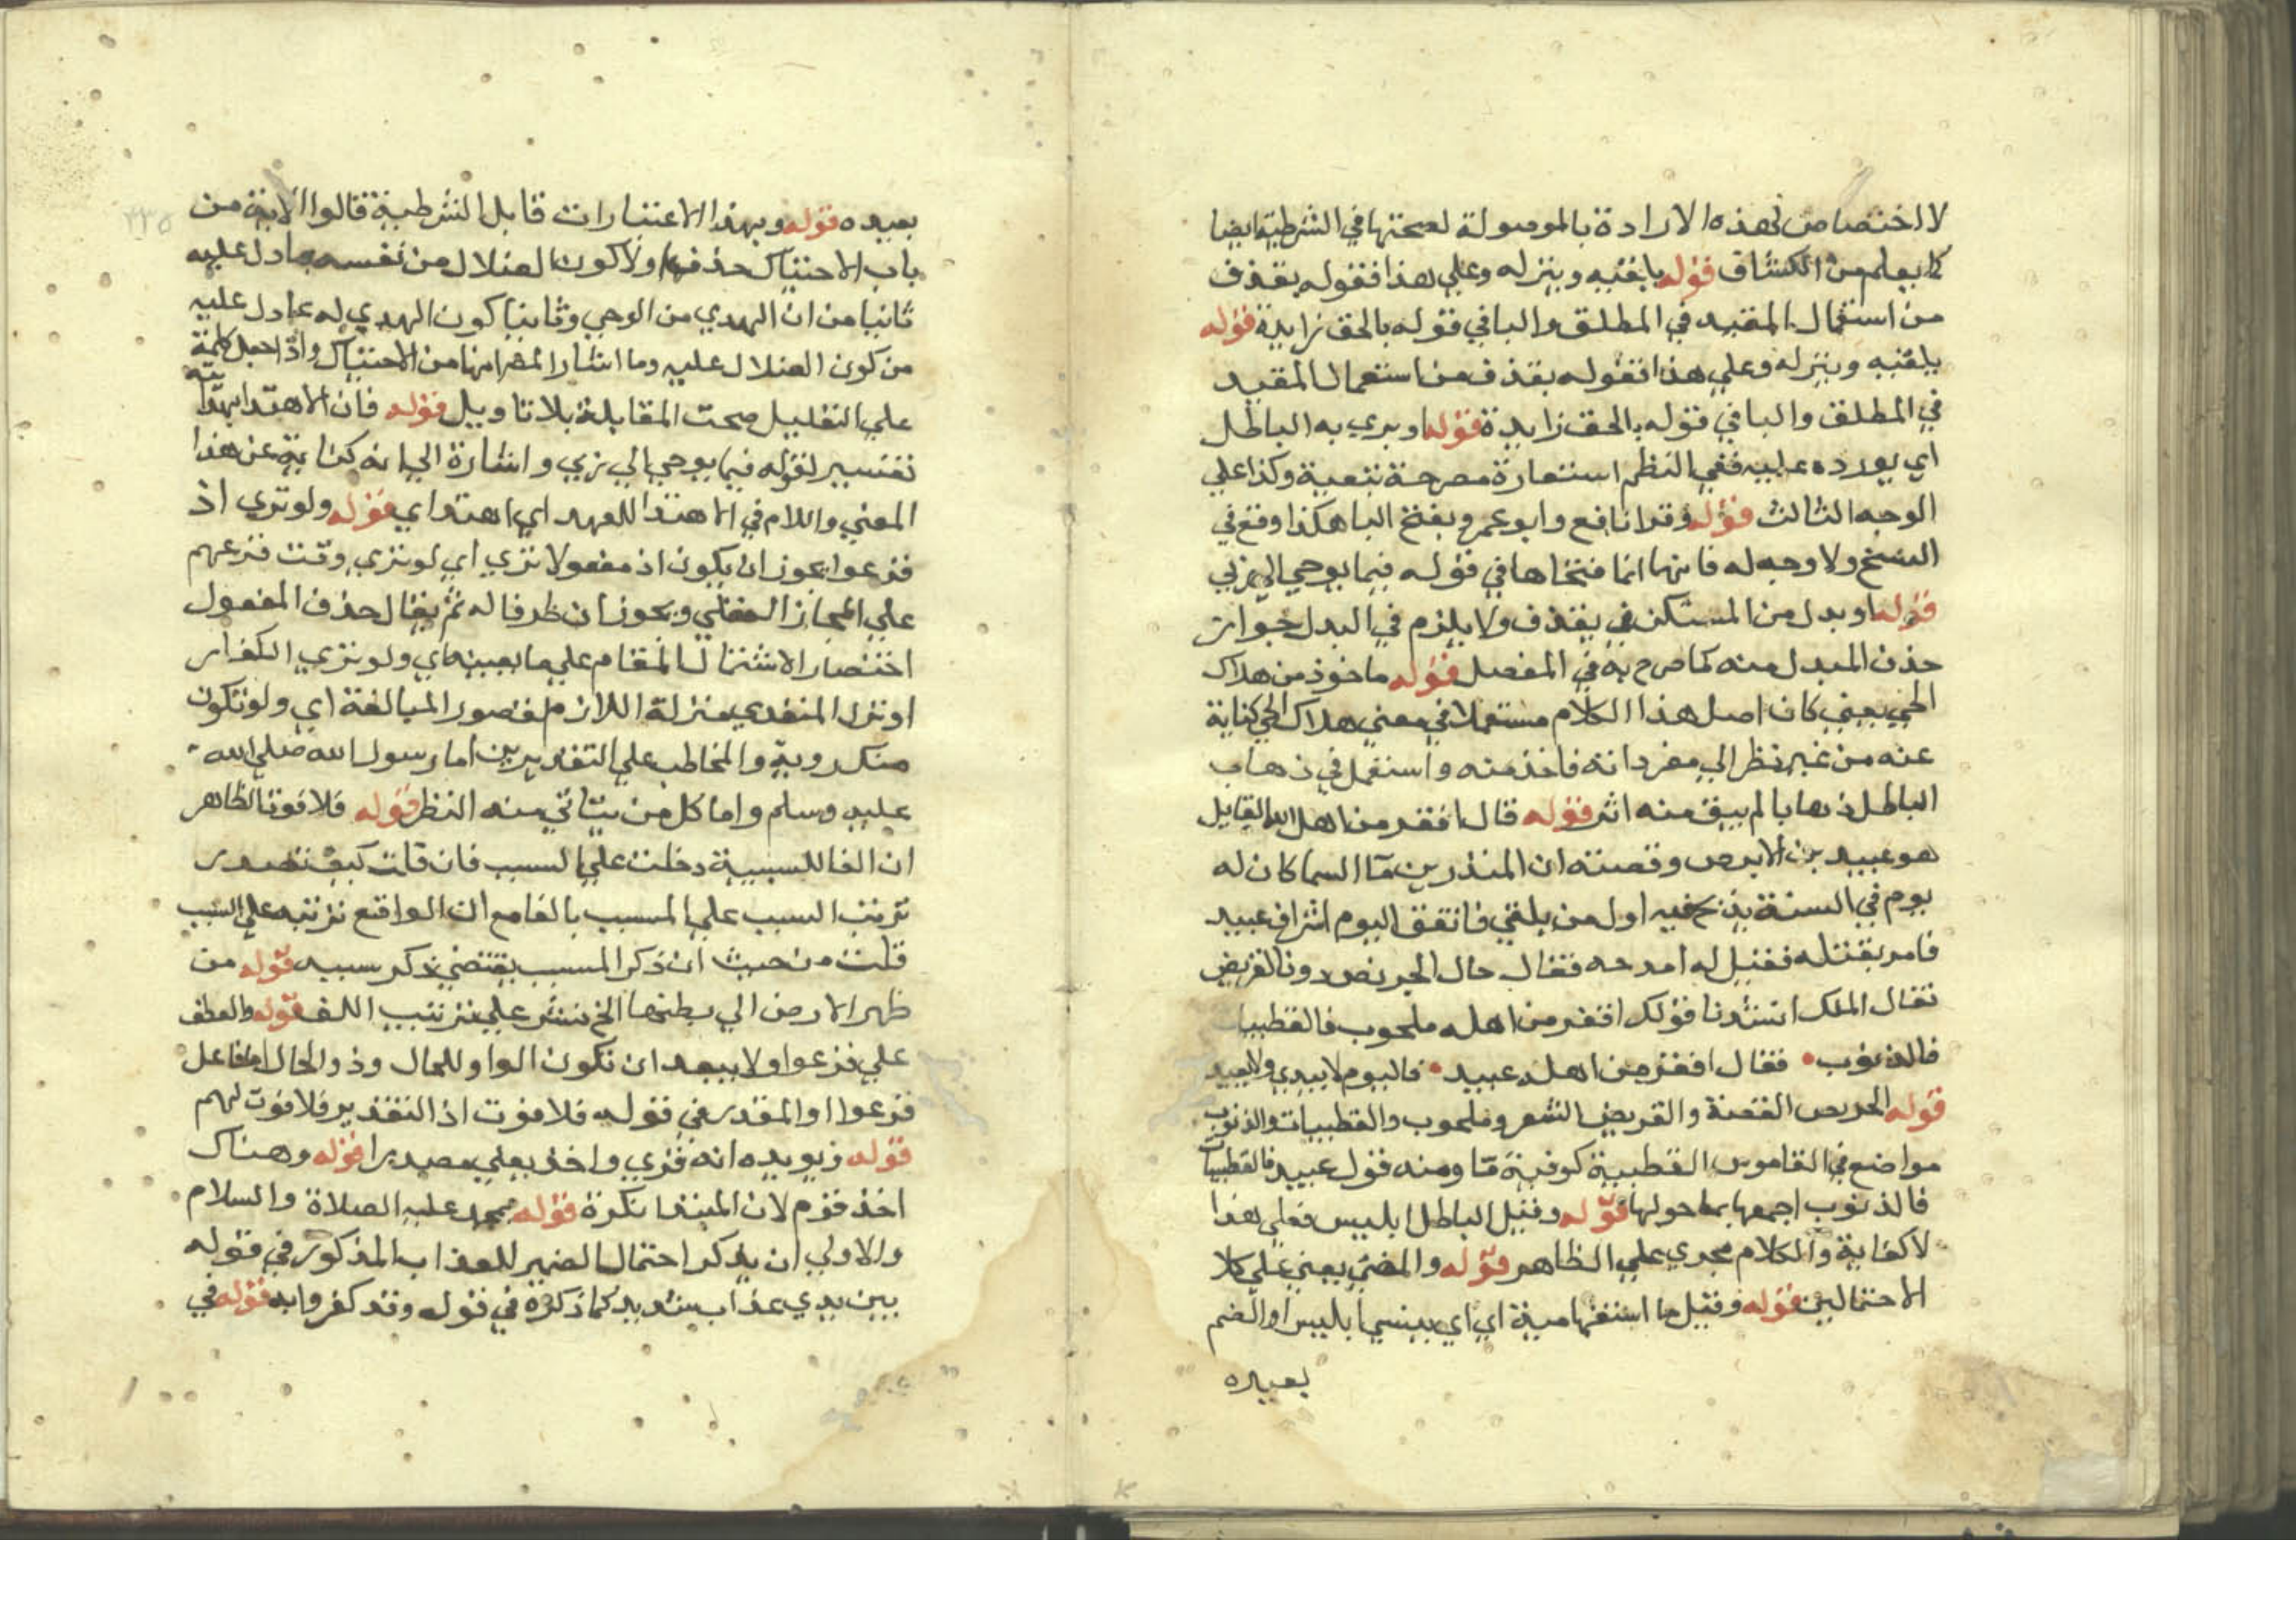 لا اختصاص لهذه الارادة بالموصولة لصحتها في الشرطية ايضا
كما يعلم من الكشاف قوله يلقيه وينزله وعلي هذا فقوله يقذف
من استعمال المقيد في المطلق والبا في قوله بالحق زايدة قوله
يلقيه وينزله وعلي هذا فقوله يقذف من استعمال المقيد
في المطلق والبا في قوله بالحق زايدة قوله او يرمي به الباطل
اي يورده عليه ففي النظم استعارة مصرحة تبعية وكذا علي
الوجه الثالث قوله وقرا نافع وابو عمرو بفتح اليا هكذا وقع في
النسخ ولا وجه له فانهما انما فتحاها في قوله فيما يوحي الي ربي
قوله او بدل من المستكن في يقذف ولا يلزم في البدل جواز
حذف المبدل منه كما صرح به في المفصل قوله ماخوذ من هلاك
الحي يعني كان اصل هذا الكلام مستعملا في معني هلاك الحي كناية
عنه من غير نظر الي مفرداته فاخذ منه واستعمل في ذهاب
الباطل ذهابا لم يبق منه اثر قوله قال اقفر من اهله القايل
هو عبيد بن الابرص وقصته ان المنذر بن ما السما كان له
يوم في السنة يذبح فيه اول من يلقي فاتفق اليوم اشراف عبيد
فامر بقتله فقيل له امدحه فقال حال الجريض دون القريض
فقال الملك انشدنا قولك اقفر من اهله ملحوب فالقطبيات
فالذنوب • فقال اقفر من اهله عبيد • فاليوم لا يبدي ولا يعيد
قوله الجريض الغصة والقريض الشعر وملحوب والقطبيات والذنوب
مواضع في القاموس القطبية كوفية ما ومنه قول عبيد فالقطبيات
فالذنوب اجمعها بما حولها قوله وقيل الباطل ابليس فعلي هذا
لا كناية والكلام مجري علي الظاهر قوله والمعني يعني علي كلا
الاحتمالين قوله وقيل ما استفهامية اي اي ينسي ابليس او الصنم
يعيده
بعيده قوله وبهذا الاعتبارات قابل الشرطية قالوا الاية من
باب الاحتباك حذف اولا كون الضلال من نفسه بما دل عليه
ثانيا من ان الهدي من الوحي وثانيا كون الهدي له بما دل عليه
من كون الضلال عليه وما اشار المصر امنا من الاحتباك واذا حمل كلمة
علي التعليل صحت المقابلة بلا تاويل قوله فان الاهتدا بهدايته
تفسير لقوله فيما يوحي الي ربي واشارة الي انه كناية عن هذا
المعني واللام في الاهتدا للعهد اي اهتدايي قوله ولو تري اذ
فزعوا يجوز ان يكون اذ مفعولا تري اي لو تري وقت فزعهم
علي المجاز العقلي ويجوز ان ظرفا له ثم يقال حذف المفعول
اختصارا لاشتمال المقام علي ما يعينه اي ولو تري الكفار
او نزل المتعدي منزلة اللازم لقصور المبالغة اي ولو تكون
منك روية والمخاطب علي التقديرين اما رسول الله صلي الله
عليه وسلم واما كل من يتاتي منه النظر قوله فلا فوت الظاهر
ان الفا للسببية دخلت علي السبب فان قلت كيف تقصد
ترتب السبب علي المسبب بالفا مع ان الواقع ترتبه علي السبب
قلت من حيث ان ذكر المسبب يقتضي ذكر سببه قوله من
ظهر الارض الي بطنها الخ نشر علي ترتيب اللف قوله والعطف
علي فزعوا ولا يبعد ان تكون الواو للحال وذو الحال اما فاعل
فزعوا او المقدر في قوله فلا فوت اذ التقدير فلا فوت لهم
قوله ويويده انه قري واخذ يعني مصدرا قوله وهناك
اخذ فزم لان المبتدا نكرة قوله محمد عليه الصلاة والسلام
والاولي ان يذكر احتمال الضمير للعذاب المذكور في قوله
بين يدي عذاب شديد كما ذكره في قوله وقد كفروا به قوله في